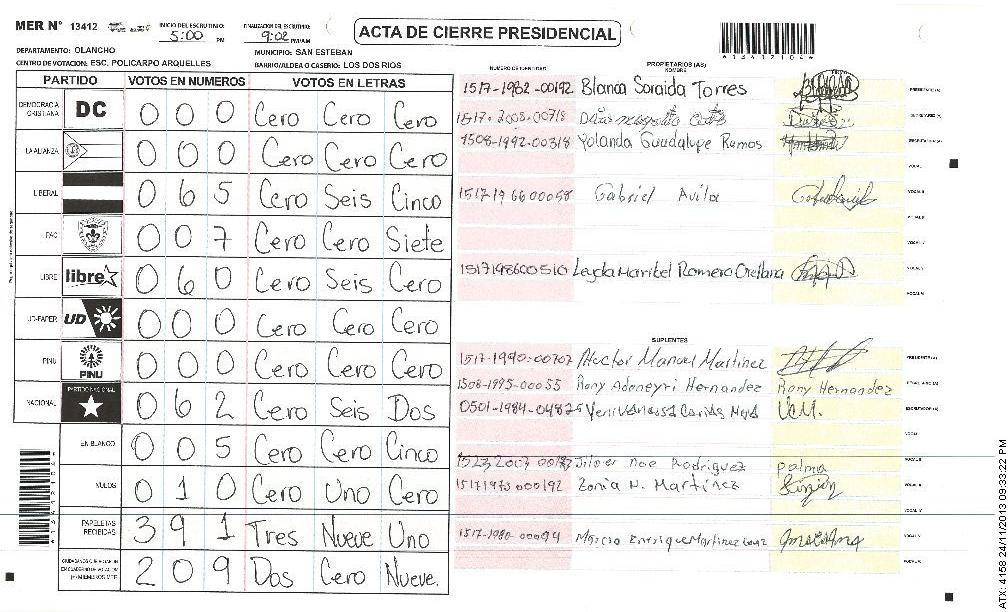 MER N° 13412 INICIO DEL ESCRUTINIO: 5:00 PM FINALIZACION DEL ESCRUTINIO: 9:02 PM/AM
ACTA DE CIERRE PRESIDENCIAL
*13412104*
DEPARTAMENTO: OLANCHO MUNICIPIO: SAN ESTEBAN
CENTRO DE VOTACION: ESC. POLICARPO ARQUELLES BARRIO/ALDEA O CASERIO: LOS DOS RIOS
PARTIDO VOTOS EN NUMEROS VOTOS EN LETRAS
DEMOCRACIA CRISTIANA DC 0 0 0 Cero Cero Cero
LA ALIANZA 0 0 0 Cero Cero Cero
LIBERAL 0 6 5 Cero Seis Cinco
PAC 0 0 7 Cero Cero Siete
LIBRE libre 0 6 0 Cero Seis Cero
UD-FAPER UD 0 0 0 Cero Cero Cero
PINU PINU 0 0 0 Cero Cero Cero
NACIONAL PARTIDO NACIONAL 0 6 2 Cero Seis Dos
EN BLANCO 0 0 5 Cero Cero Cinco
NULOS 0 1 0 Cero Uno Cero
PAPELETAS RECIBIDAS 3 9 1 Tres Nueve Uno
2 0 9 Dos Cero Nueve.
NUMERO DE IDENTIDAD PROPIETARIOS (AS) NOMBRE FIRMA
1517-1982-00192 Blanca Soraida Torres PRESIDENTE (A)
1517-2008-00718 SECRETARIO (A)
1508-1992-00318 Yolanda Guadalupe Ramos ESCRUTADOR (A)
VOCAL I
1517 19 66 00058 Gabriel Avila VOCAL II
VOCAL III
VOCAL IV
1517198600510 Leyda Maribel Romero Orellana VOCAL V
VOCAL VI
SUPLENTES
1517-1990-00707 Hector Manuel Martinez PRESIDENTE (A)
1508-1995-00055 Rony Adoneyri Hernandez Rony Hernandez SECRETARIO (A)
0501-1984-04875 ESCRUTADOR (A)
VOCAL I
Noe Rodriguez palma VOCAL II
15171973000192 Zonia N. Martinez VOCAL III
VOCAL IV
1517-1980-00094 Marcio Enrique Martinez VOCAL V
VOCAL VI
*13412104*
ATX: 4158 24/11/2013 09:33:22 PM